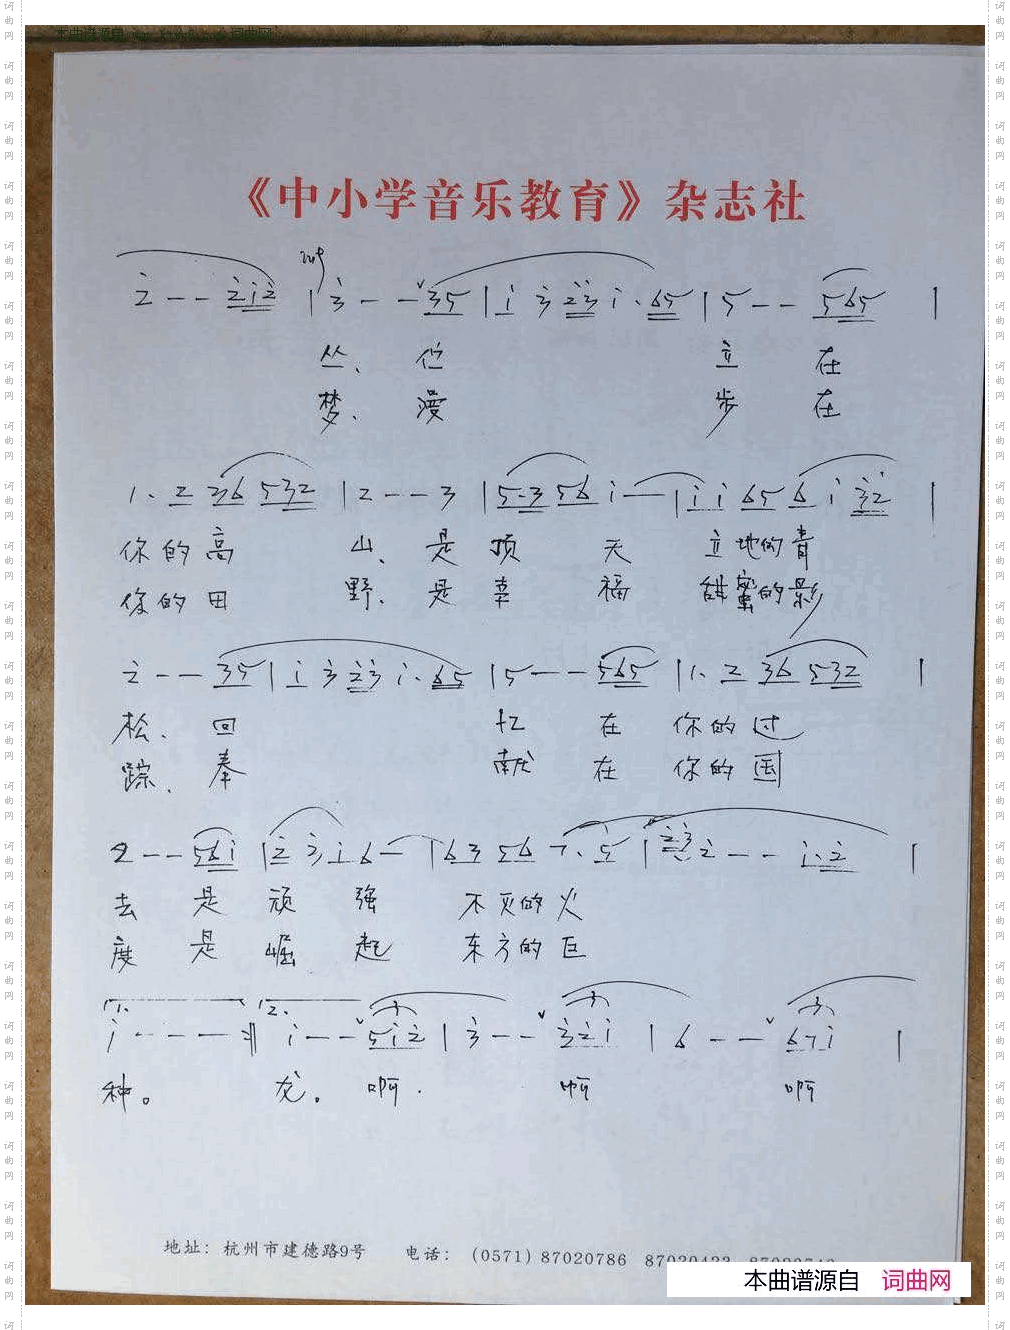 本曲谱源自 词曲网
《中小学音乐教育》杂志社
mf
2 - - 2 1 2 | 3 - - 3 5 | 1 3 2 3 1 · 6 5 | 5 - - 5 6 5 |
丛、伫 立 在
梦、漫 步 在
1 · 2 3 6 5 3 2 | 2 - - 3 | 5 · 3 5 6 1 - | 1 1 6 5 6 1 3 2 |
你的高 山、是 顶 天 立地的青
你的田 野、是 幸 福 甜蜜的影
2 - - 3 5 | 1 3 2 3 1 · 6 5 | 5 - - 5 6 5 | 1 · 2 3 6 5 3 2 |
松、回 忆 在 你的过
踪、奉 献 在 你的国
2 - - 5 6 1 | 2 3 1 6 - | 6 3 5 6 7 · 5 | 2 3 2 - - 1 · 2 |
去 是 顽 强 不灭的火
度 是 崛 起 东方的巨
1. 2.
1 - - - :‖ 1 - - 5 1 2 | 3 - - 3 2 1 | 6 - - 6 7 1 |
种。 龙。 啊 啊 啊
地址：杭州市建德路9号 电话：(0571) 87020786
本曲谱源自 词曲网